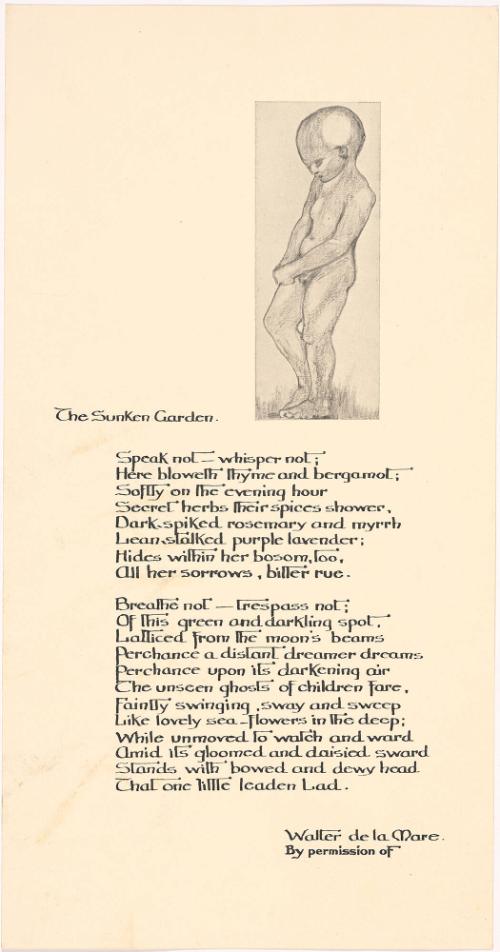 The Sunken Garden.
Speak not — whisper not;
Here bloweth thyme and bergamot;
Softly on the evening hour
Secret herbs their spices shower,
Dark-spiked rosemary and myrrh
Lean-stalked purple lavender;
Hides within her bosom, too,
All her sorrows, bitter rue.
Breathe not — trespass not;
Of this green and darkling spot,
Latticed from the moon's beams
Perchance a distant dreamer dreams
Perchance upon its darkening air
The unseen ghosts of children fare,
Faintly swinging, sway and sweep
Like lovely sea-flowers in the deep;
While unmoved to watch and ward
Amid its gloomed and daisied sward
Stands with bowed and dewy head
That one little leaden Lad.
Walter de la Mare.
By permission of